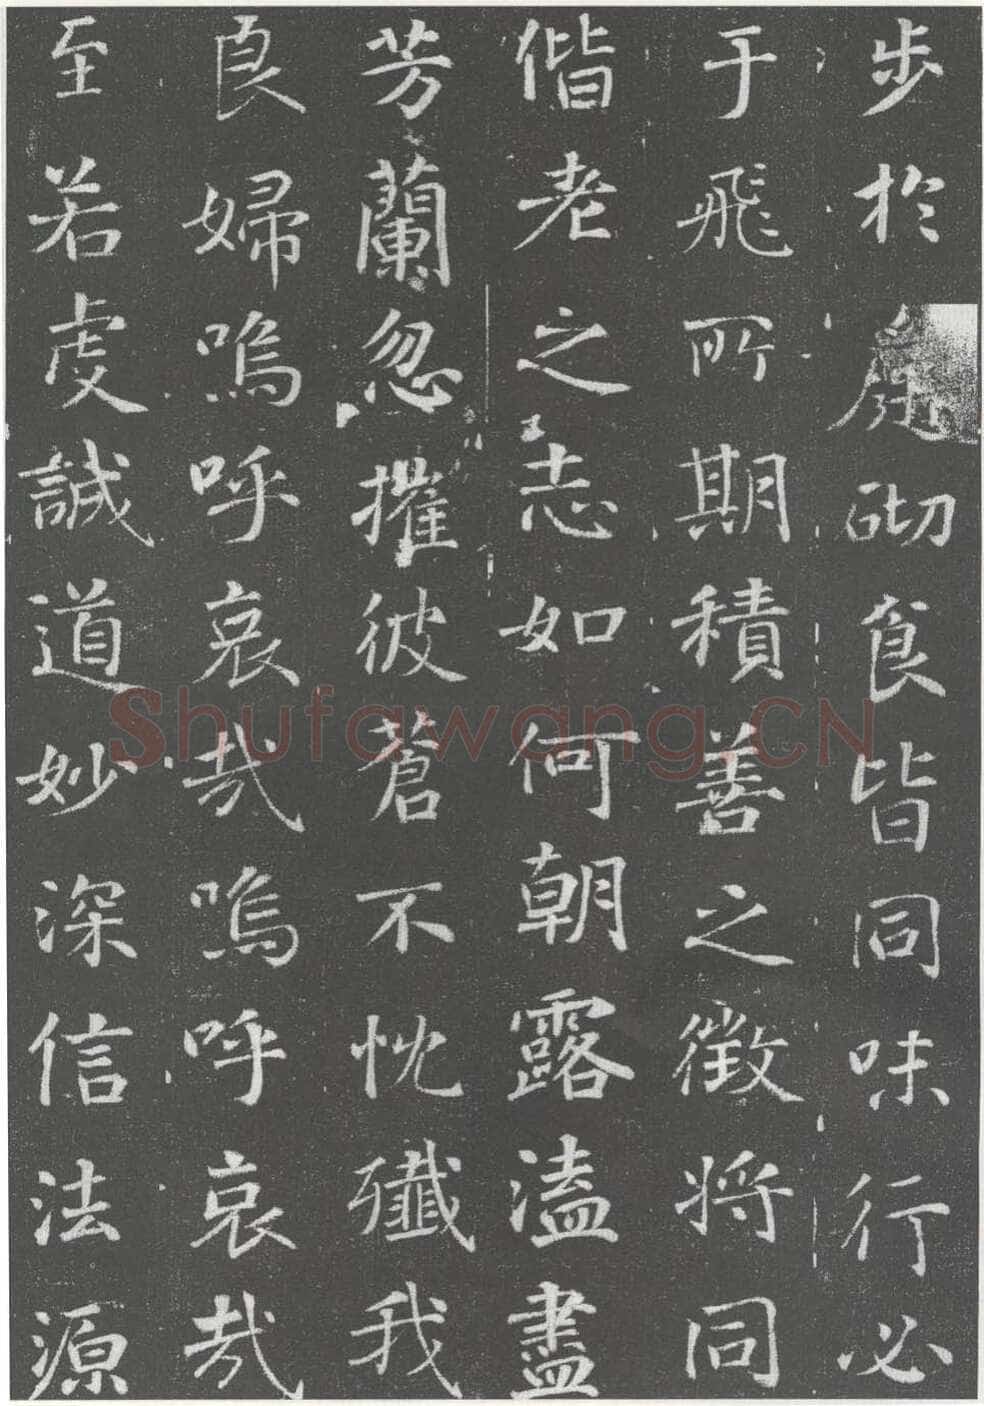 步於庭砌食皆同味行必
于飛所期積善之徵將同
偕老之志如何朝露溘盡
芳蘭忽摧彼蒼不忱殲我
良婦嗚呼哀哉嗚呼哀哉
至若虔誠道妙深信法源
Shufawang.CN